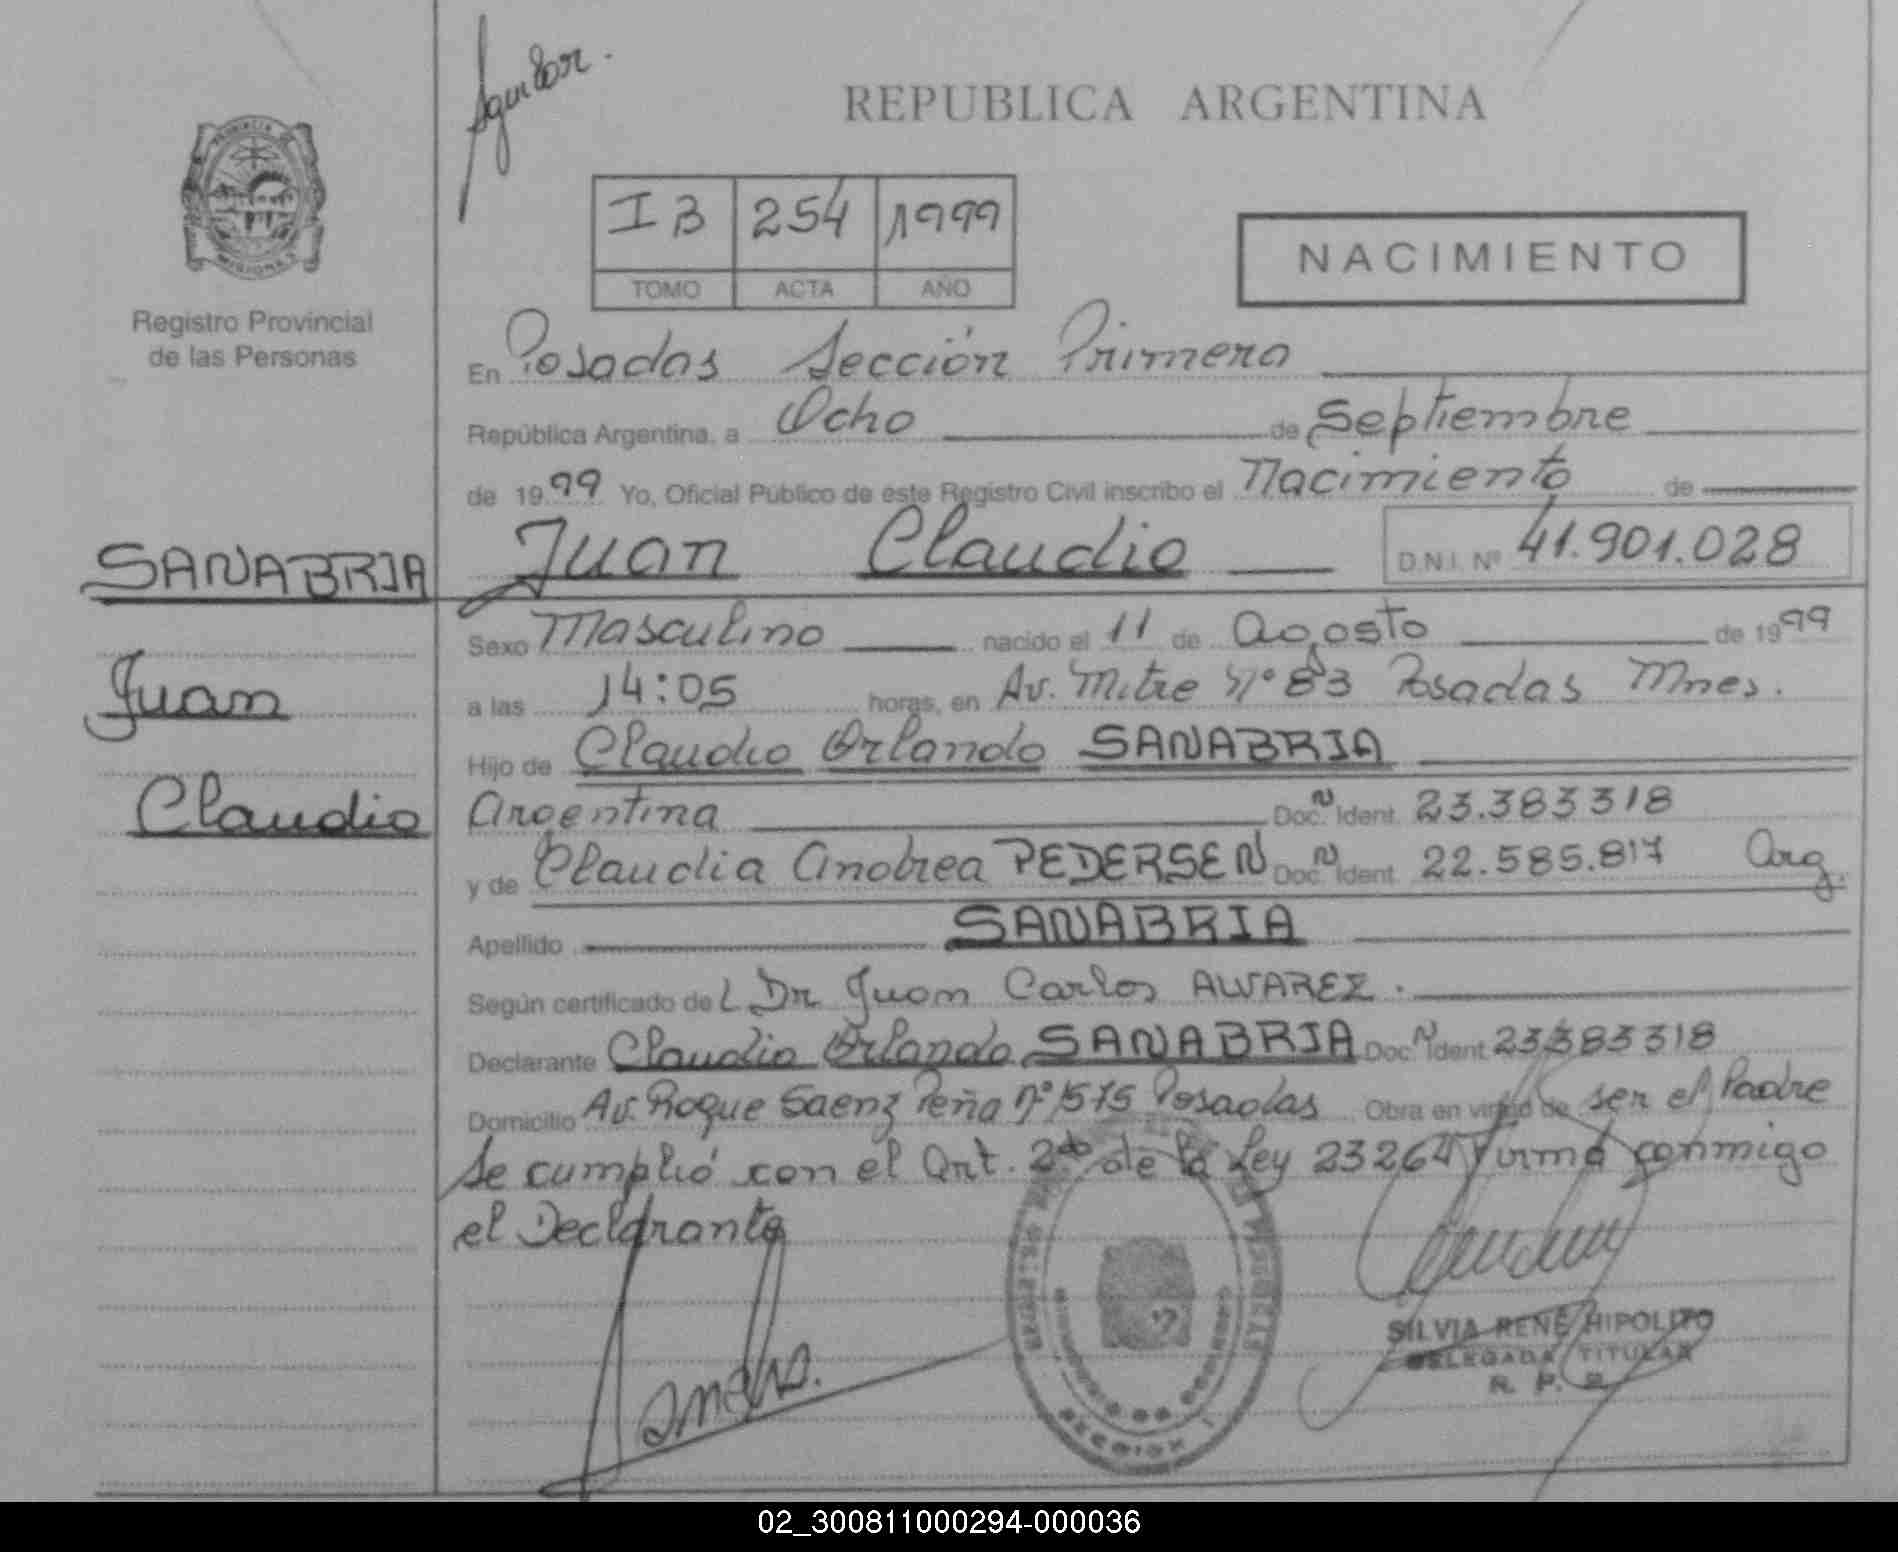 Aguilar.
REPUBLICA ARGENTINA
PROVINCIA
MISIONES
Registro Provincial
de las Personas
I B 254 1999
TOMO ACTA AÑO
NACIMIENTO
En Posadas Sección Primera
República Argentina, a Ocho de Septiembre
de 1999 Yo, Oficial Público de este Registro Civil inscribo el Nacimiento de
Juan Claudio D.N.I. Nº 41.901.028
SANABRIA
Juan
Claudio
Sexo Masculino nacido el 11 de Agosto de 1999
a las 14:05 horas, en Av. Mitre Nº 83 Posadas Mnes.
Hijo de Claudio Orlando SANABRIA
Argentina Doc. N Ident. 23.383318
y de Claudia Andrea PEDERSEN Doc. N Ident. 22.585.817 Arg.
Apellido SANABRIA
Según certificado del Dr Juan Carlos ALVAREZ.
Declarante Claudio Orlando SANABRIA Doc. N Ident 23383318
Domicilio Av. Roque Saenz Peña nº 1575 Posadas Obra en virtud de ser el Padre
Se cumplió con el Art. 2do de la Ley 23264 Firma conmigo
el Declarante
SILVIA RENE HIPOLITO
DELEGADA TITULAR
R. P. P.
02_300811000294-000036